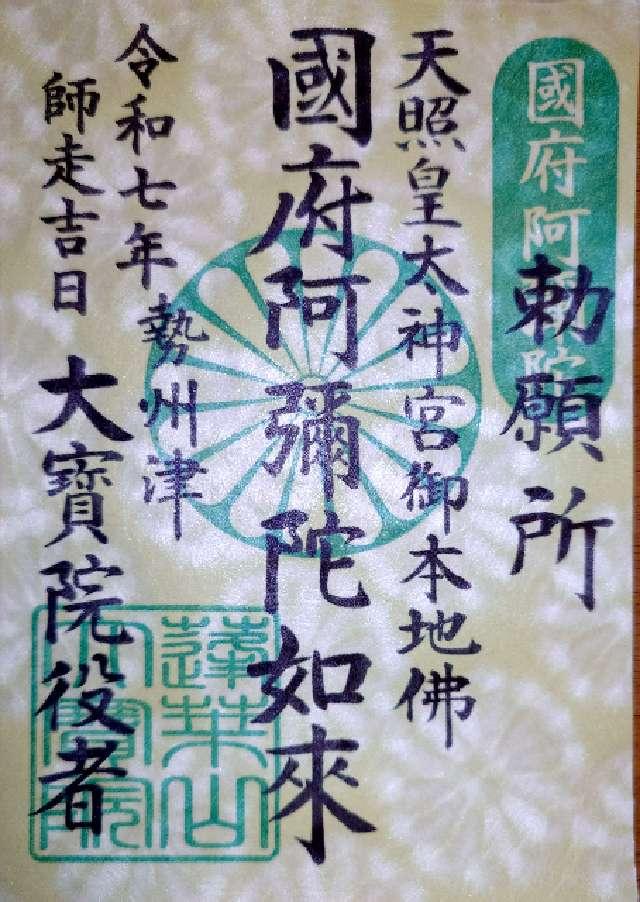 國府阿彌陀
勅願所
天照皇太神宮御本地佛
國府阿彌陀如來
令和七年
勢州津
師走吉日
大寶院役者
蓮華山
大寶院